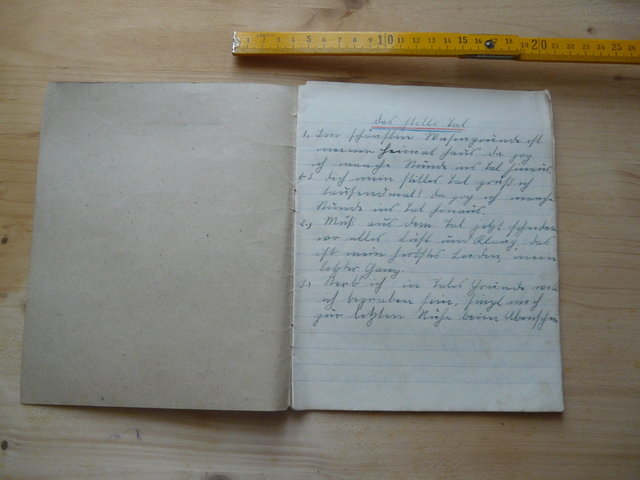 1 2 3 4 5 6 7 8 9 10 11 12 13 14 15 16 17 18 19 20 21 22 23 24 25 26
Das stille Tal
1., Im schönsten Wiesengrunde ist
meiner Heimat Haus da zog
ich manche Stunde ins Tal hinaus
1-3. Dich mein stilles Tal grüß ich
tausendmal! Da zog ich manche
Stunde ins Tal hinaus.
2., Muß aus dem Tal jetzt scheiden
wo alles Lust und Klang, das
ist mein herbstes Leiden, mein
letzter Gang.
3., Sterb' ich in Tales Grunde will
ich begraben sein, singt mich
zur letzten Ruhe beim Abenschein